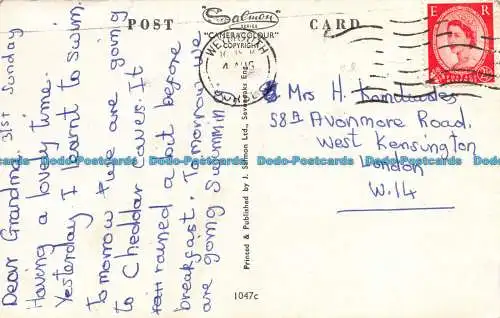 POST
Salmon
SERIES
"CAMERACOLOUR"
COPYRIGHT
CARD
E R
WEYMOUTH
4 AUG
Dear Grandma. 31st Sunday
Having a lovely time.
Yesterday I learnt to swim.
Tomorrow we are going
to Cheddar Caves. It
rained a bit before
breakfast. Tomorrow we
are going swimming
Printed & Published by J. Salmon Ltd., Sevenoaks Eng.
Mrs H.
58A Avonmore Road,
West Kensington
London
W.14
1047c
Dodo-Postcards Dodo-Postcards Dodo-Postcards Dodo-Postcards Dodo-Postcards